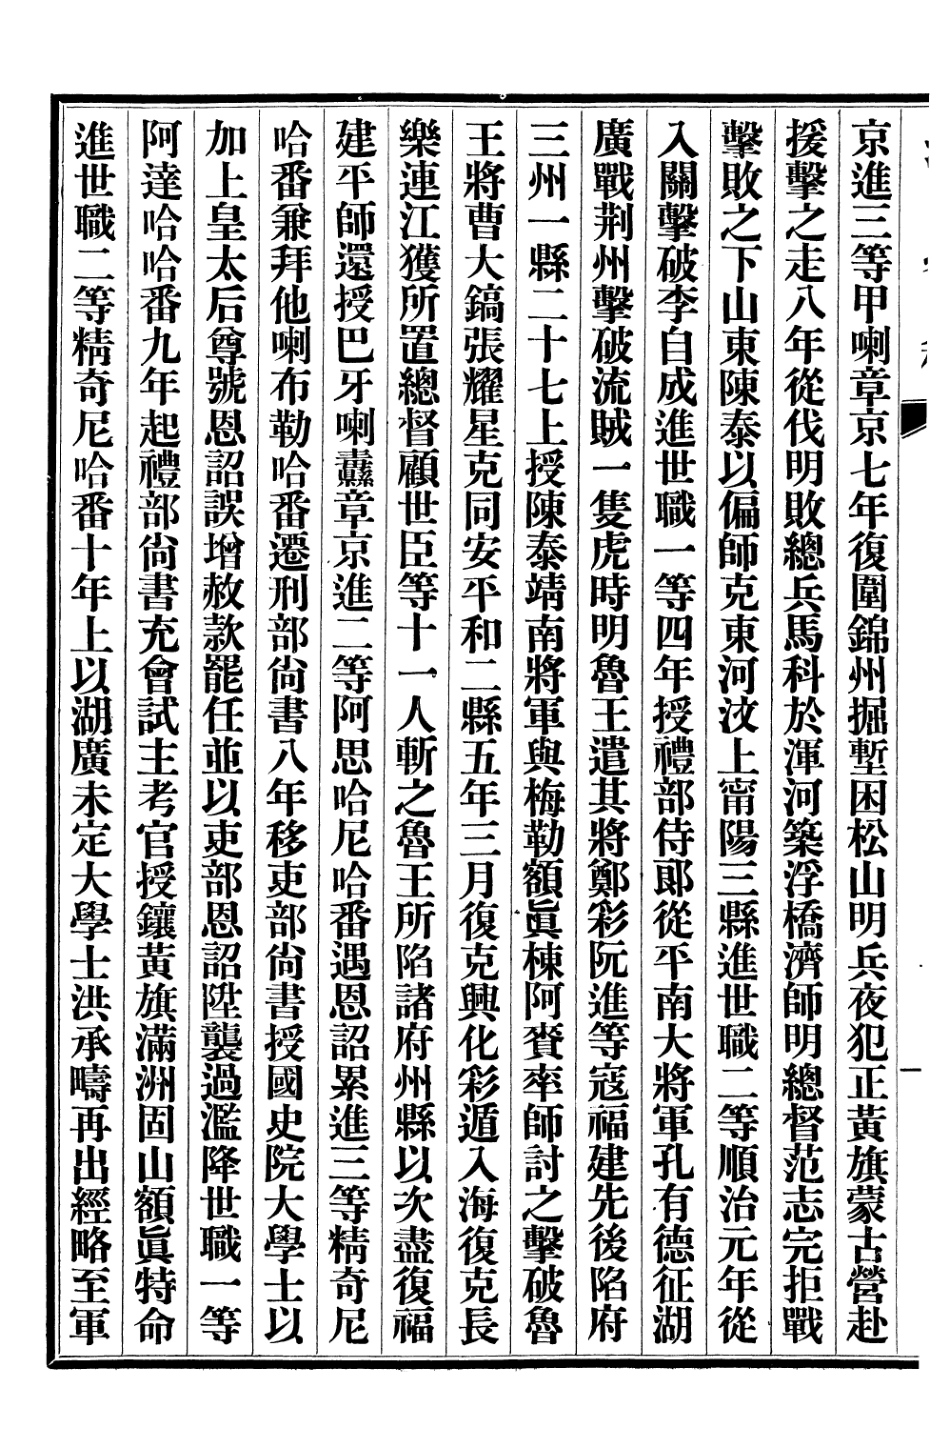 京進三等甲喇章京七年復圍錦州掘塹困松山明兵夜犯正黃旗蒙古營赴
援擊之走八年從伐明敗總兵馬科於渾河築浮橋濟師明總督范志完拒戰
擊敗之下山東陳泰以偏師克東河汶上甯陽三縣進世職二等順治元年從
入關擊破李自成進世職一等四年授禮部侍郞從平南大將軍孔有德征湖
廣戰荆州擊破流賊一隻虎時明魯王遣其將鄭彩阮進等寇福建先後陷府
三州一縣二十七上授陳泰靖南將軍與梅勒額眞棟阿賚率師討之擊破魯
王將曹大鎬張耀星克同安平和二縣五年三月復克興化彩遁入海復克長
樂連江獲所置總督顧世臣等十一人斬之魯王所陷諸府州縣以次盡復福
建平師還授巴牙喇纛章京進二等阿思哈尼哈番遇恩詔累進三等精奇尼
哈番兼拜他喇布勒哈番遷刑部尙書八年移吏部尙書授國史院大學士以
加上皇太后尊號恩詔誤增赦款罷任並以吏部恩詔陞襲過濫降世職一等
阿達哈哈番九年起禮部尙書充會試主考官授鑲黃旗滿洲固山額眞特命
進世職二等精奇尼哈番十年上以湖廣未定大學士洪承疇再出經略至軍